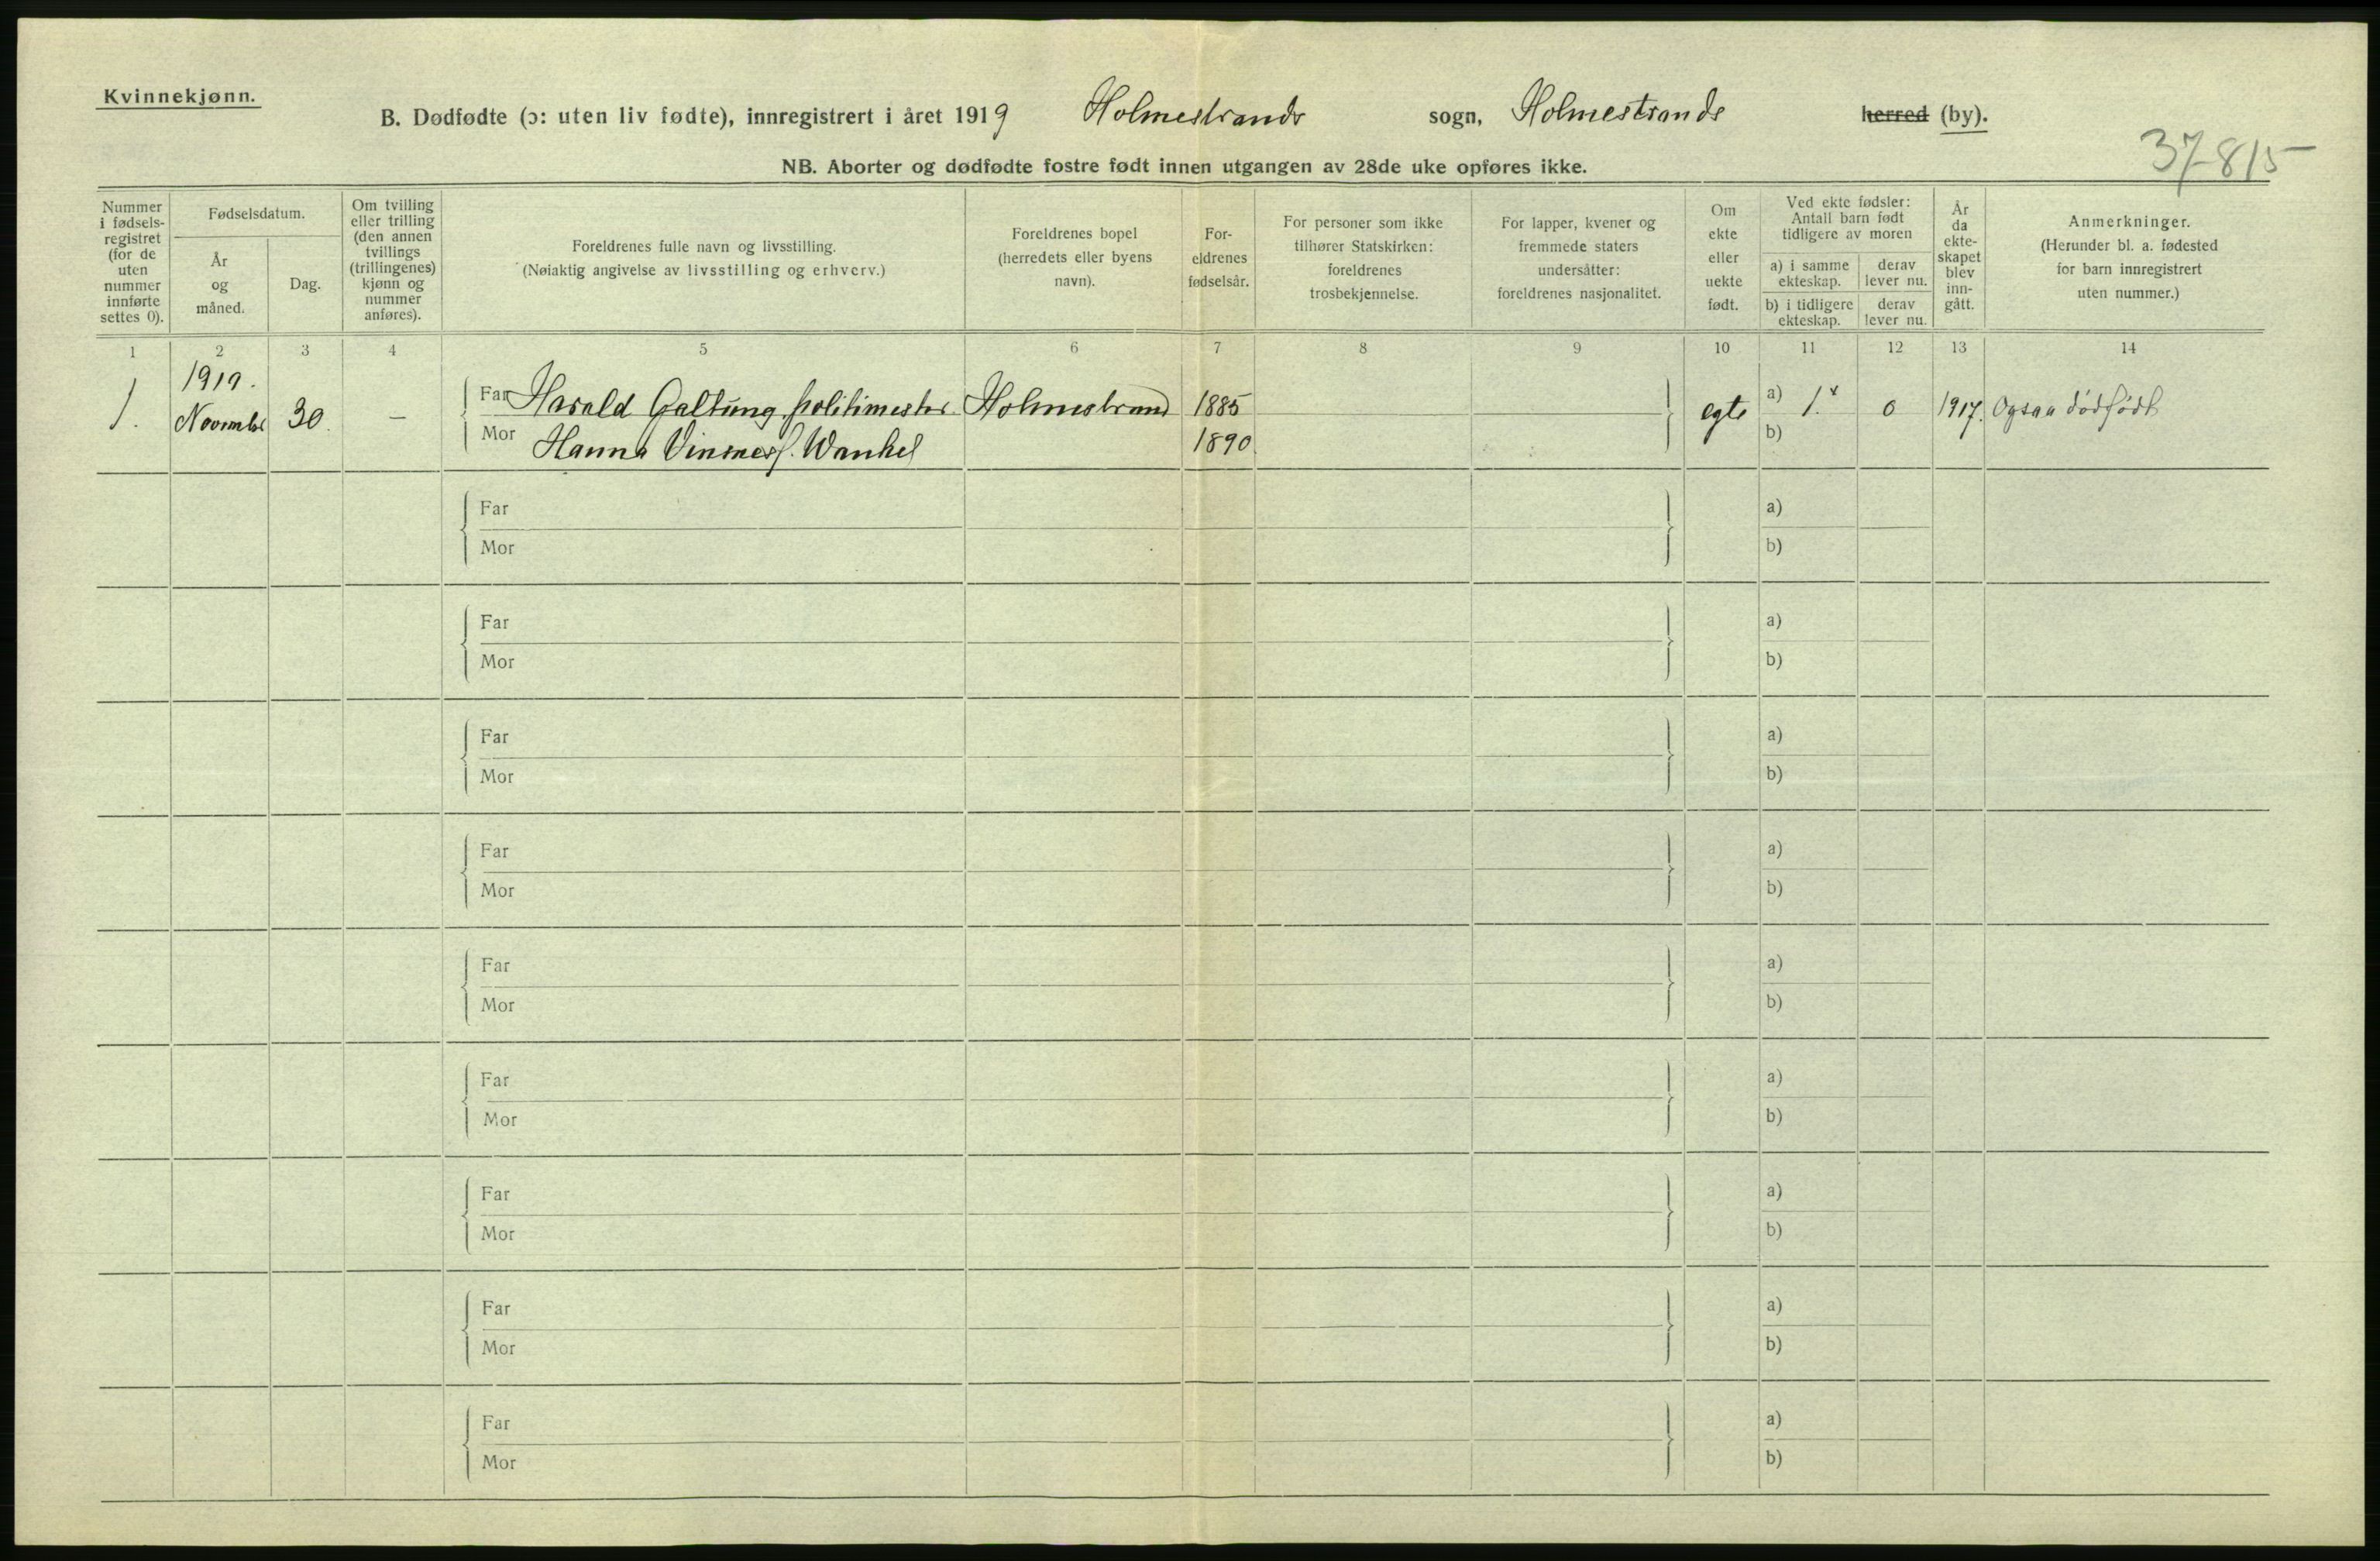 Kvinnekjønn.
B. Dødfødte (ɔ: uten liv fødte), innregistrert i året 1919 Holmestrands sogn, Holmestrands herred (by).
37-815
NB. Aborter og dødfødte fostre født innen utgangen av 28de uke opføres ikke.
Nummer i fødsels-registret (for de uten nummer innførte settes 0).
Fødselsdatum.
År og måned.
Dag.
Om tvilling eller trilling (den annen tvillings (trillingenes) kjønn og nummer anføres).
Foreldrenes fulle navn og livsstilling.
(Nøiaktig angivelse av livsstilling og erhverv.)
Foreldrenes bopel (herredets eller byens navn).
For-eldrenes fødselsår.
For personer som ikke tilhører Statskirken: foreldrenes trosbekjennelse.
For lapper, kvener og fremmede staters undersåtter: foreldrenes nasjonalitet.
Om ekte eller uekte født.
Ved ekte fødsler: Antall barn født tidligere av moren
a) i samme ekteskap.
derav lever nu.
b) i tidligere ekteskap.
derav lever nu.
År da ekte-skapet blev inn-gått.
Anmerkninger.
(Herunder bl. a. fødested for barn innregistrert uten nummer.)
1 2 3 4 5 6 7 8 9 10 11 12 13 14
1919.
1. November 30. — Far Harald Galtung, politimester Holmestrand 1885 egte a) 1.x 0 1917. Ogsaa dödfödt
Mor Hanna Vinsnes f. Wankel 1890. b)
Far a)
Mor b)
Far a)
Mor b)
Far a)
Mor b)
Far a)
Mor b)
Far a)
Mor b)
Far a)
Mor b)
Far a)
Mor b)
Far a)
Mor b)
Far a)
Mor b)